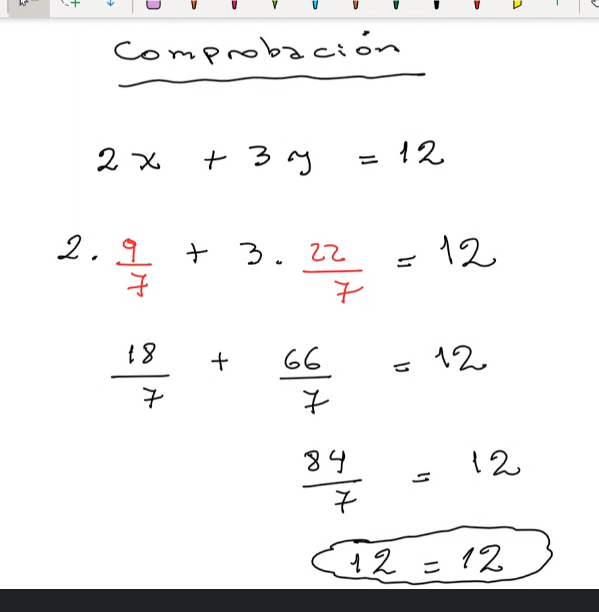 Comprobación
2x + 3y = 12
2 · 9/7 + 3 · 22/7 = 12
18/7 + 66/7 = 12
84/7 = 12
12 = 12